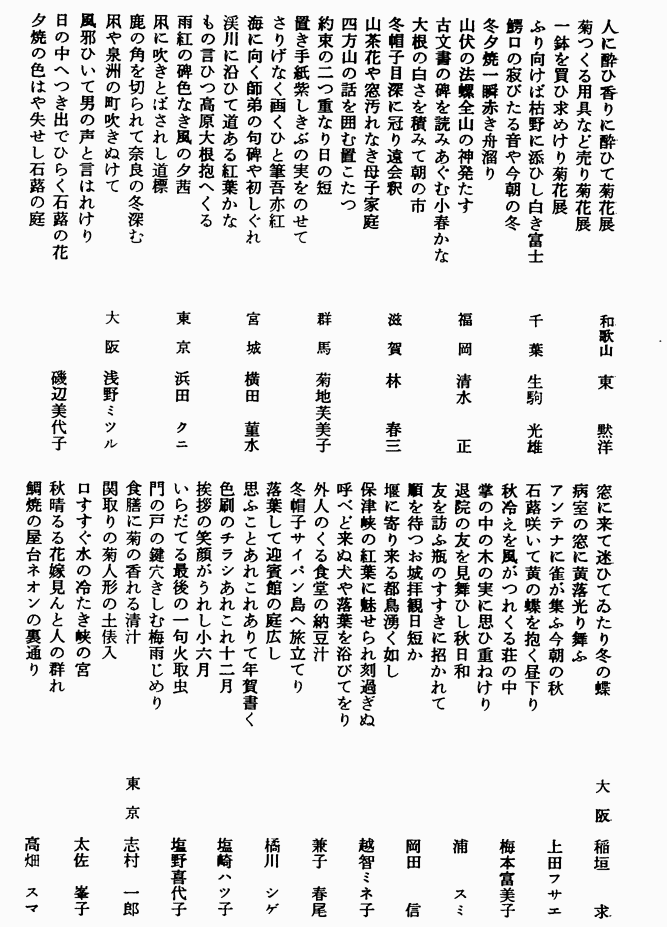 人に酔ひ香りに酔ひて菊花展　和歌山　東　黙洋
菊つくる用具など売り菊花展
一鉢を買ひ求めけり菊花展
ふり向けば枯野に添ひし白き富士　千葉　生駒　光雄
鰐口の寂びたる音や今朝の冬
冬夕焼一瞬赤き舟溜り
山伏の法螺全山の神発たす　福岡　清水　正
古文書の碑を読みあぐむ小春かな
大根の白さを積みて朝の市
冬帽子目深に冠り遠会釈　滋賀　林　春三
山茶花や窓汚れなき母子家庭
四方山の話を囲む置こたつ
約束の二つ重なり日の短　群馬　菊地芙美子
置き手紙紫しきぶの実をのせて
さりげなく画くひと筆吾亦紅
海に向く師弟の句碑や初しぐれ　宮城　横田　菫水
渓川に沿ひて道ある紅葉かな
もの言ひつ高原大根抱へくる
雨紅の碑色なき風の夕茜　東京　浜田　クニ
凩に吹きとばされし道標
鹿の角を切られて奈良の冬深む
凩や泉洲の町吹きぬけて　大阪　浅野ミツル
風邪ひいて男の声と言はれけり
日の中へつき出でひらく石蕗の花　磯辺美代子
夕焼の色はや失せし石蕗の庭
窓に来て迷ひてゐたり冬の蝶　大阪　稲垣　求
病室の窓に黄落光り舞ふ
アンテナに雀が集ふ今朝の秋　上田フサエ
石蕗咲いて黄の蝶を抱く昼下り
秋冷えを風がつれくる荘の中　梅本富美子
掌の中の木の実に思ひ重ねけり
退院の友を見舞ひし秋日和　浦　スミ
友を訪ふ瓶のすすきに招かれて
順を待つお城拝観日短か　岡田　信
堰に寄り来る都鳥湧く如し
保津峡の紅葉に魅せられ刻過ぎぬ　越智ミネ子
呼べど来ぬ犬や落葉を浴びてをり
外人のくる食堂の納豆汁　兼子　春尾
冬帽子サイパン島へ旅立てり
落葉して迎賓館の庭広し　橘川　シゲ
思ふことあれこれありて年賀書く
色刷のチラシあれこれ十二月　塩崎ハツ子
挨拶の笑顔がうれし小六月
いらだてる最後の一句火取虫　塩野喜代子
門の戸の鍵穴きしむ梅雨じめり
食膳に菊の香れる清汁　東京　志村　一郎
関取りの菊人形の土俵入
口すすぐ水の冷たき峡の宮　太佐　峯子
秋晴るる花嫁見んと人の群れ
鯛焼の屋台ネオンの裏通り　高畑　スマ